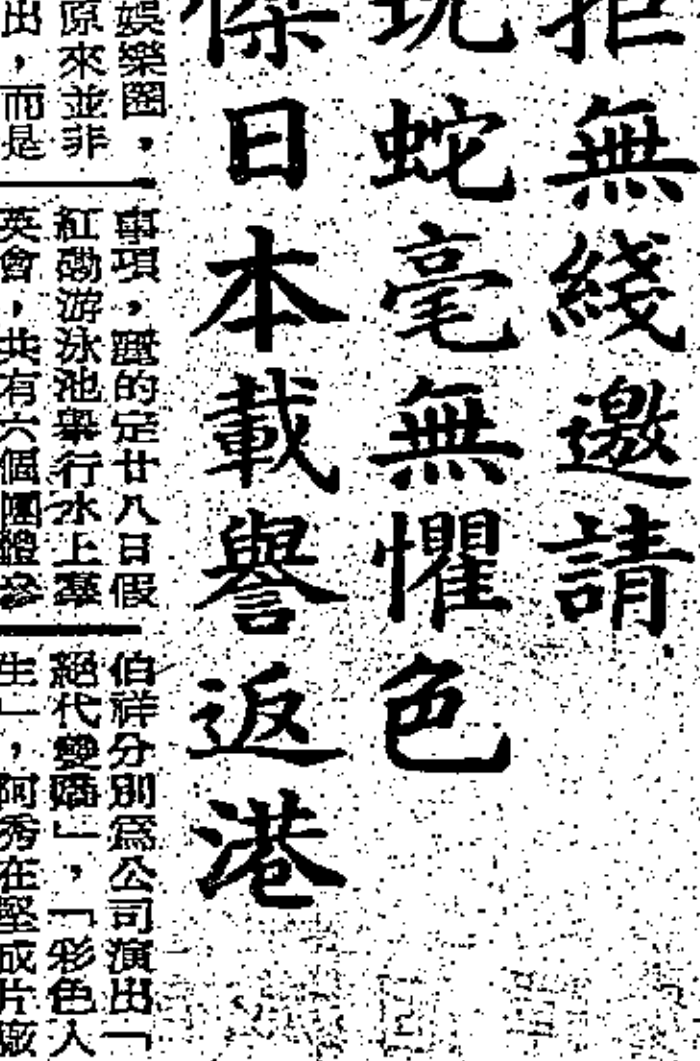 拒無綫邀請
玩蛇毫無懼色
傑日本載譽返港
娛樂圈，
原來並非
出，而是
事項，麗的定廿八日假
紅磡游泳池舉行水上羣
英會，共有六個團體參
伯祥分別為公司演出「
絕代雙嬌」，「彩色人
生」，阿秀在堅成片廠